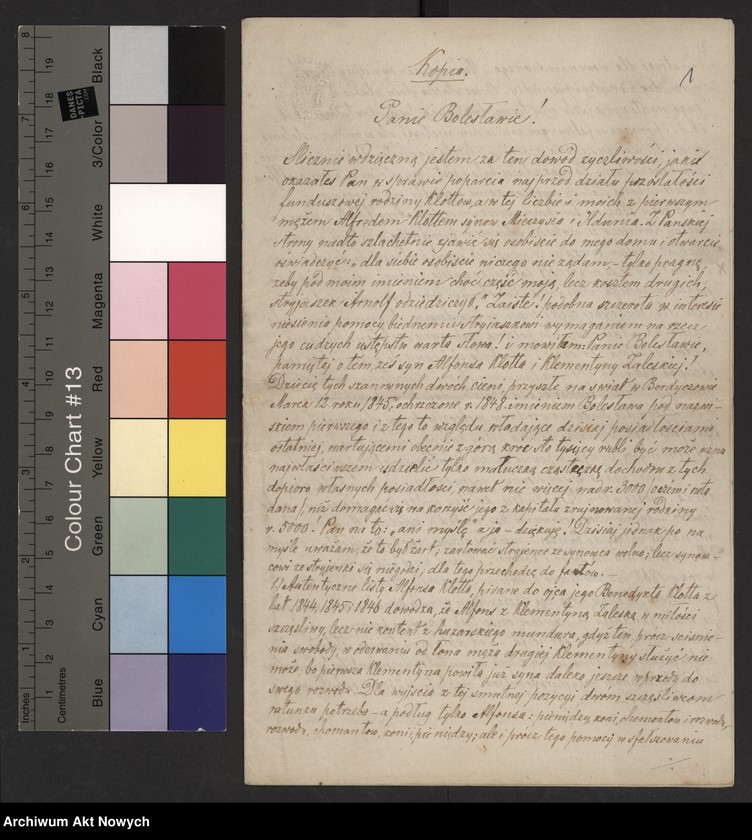 Kopia.
1
Panie Bolesławie!
Ślicznie wdzięczną jestem za ten dowód życzliwości, jakiś
okazałeś Pan w sprawie poparcia naj przód działu pozostałości
funduszowej rodziny Klottów, a w tej liczbie i moich z pierwszym
mężem Alfredem Klottem synów Mieczysia i Ildunia. Z Pańskiej
strony nadto szlachetnie zjawić się osobiście do mego domu i otwarcie
oświadczyć: „dla siebie osobiście niczego nie żądam – tylko pragnę,
żeby pod moim imieniem choć część moją, lecz kosztem drugich,
stryjaszek Arnolf odziedziczył." Zaiste! podobna szczerota w interesie
niesienia pomocy biednemu stryjaszkowi wymaganiem na rzecz
jego cudzych ustępstw warta słowa! i mówiłam: Panie Bolesławie,
pamiętaj o tem, żeś syn Alfonsa Klotta i Klementyny Zaleskiej!
Dziecię tych szanownych dwóch cieni, przyszłe na świat w Berdyczowie
Marca 12 roku 1845, ochrzczone r. 1848 imieniem Bolesława pod nazwi-
skiem pierwszego i z tego to względu władające dzisiaj posiadłościami
ostatniej, wartującemi obecnie z górą kroć sto tysięcy rubli, być może uzna
najwłaściwszem udzielić tylko malučką cząsteczkę dochodów z tych
dopiero własnych posiadłości, nawet nie więcej nad r. 3000
dana/, niż domagać się na korzyść jego z kapitału zrujnowanej rodziny
r. 5000! Pan na to: „ani myślę" a ja – dziękuję! Dzisiaj jednak po na
myśle uważam, że to był żart; żartować stryjence ze synowca wolno; lecz synow-
cowi ze stryjenki się niegodzi; dla tego przechodzę do faktów. –
1/ Autentyczne listy Alfonsa Klotta, pisane do ojca jego Benedykta Klotta z
lat 1844, 1845 i 1846 dowodzą, że Alfons z Klementyną Zaleską w miłości
szczęśliwy, lecz nie kontent z huzarskiego mundura, gdyż ten, prócz ścisnie-
nia swobody, w oderwaniu od łona męża drugiej Klementyny służyć nie
może, bo pierwsza Klementyna powiła już syna daleko jeszcze wprzódy do
swego rozwodu. Dla wyjścia z tej smutnej pozycyi dwom szczęśliwcom
ratunku potrzeba – a podług tylko Alfonsa: pieniędzy, koni, chomontów i rozwodu,
rozwodu, chomontów, koni, pieniędzy; ale i prócz tego pomocy w sfałszowaniu
Colour Chart #13
DANES
-PICTA
.COM
Black
3/Color
White
Magenta
Red
Yellow
Green
Cyan
Blue
Inches
Centimetres
1 2 3 4 5 6 7 8
1 2 3 4 5 6 7 8 9 10 11 12 13 14 15 16 17 18 19
Archiwum Akt Nowych